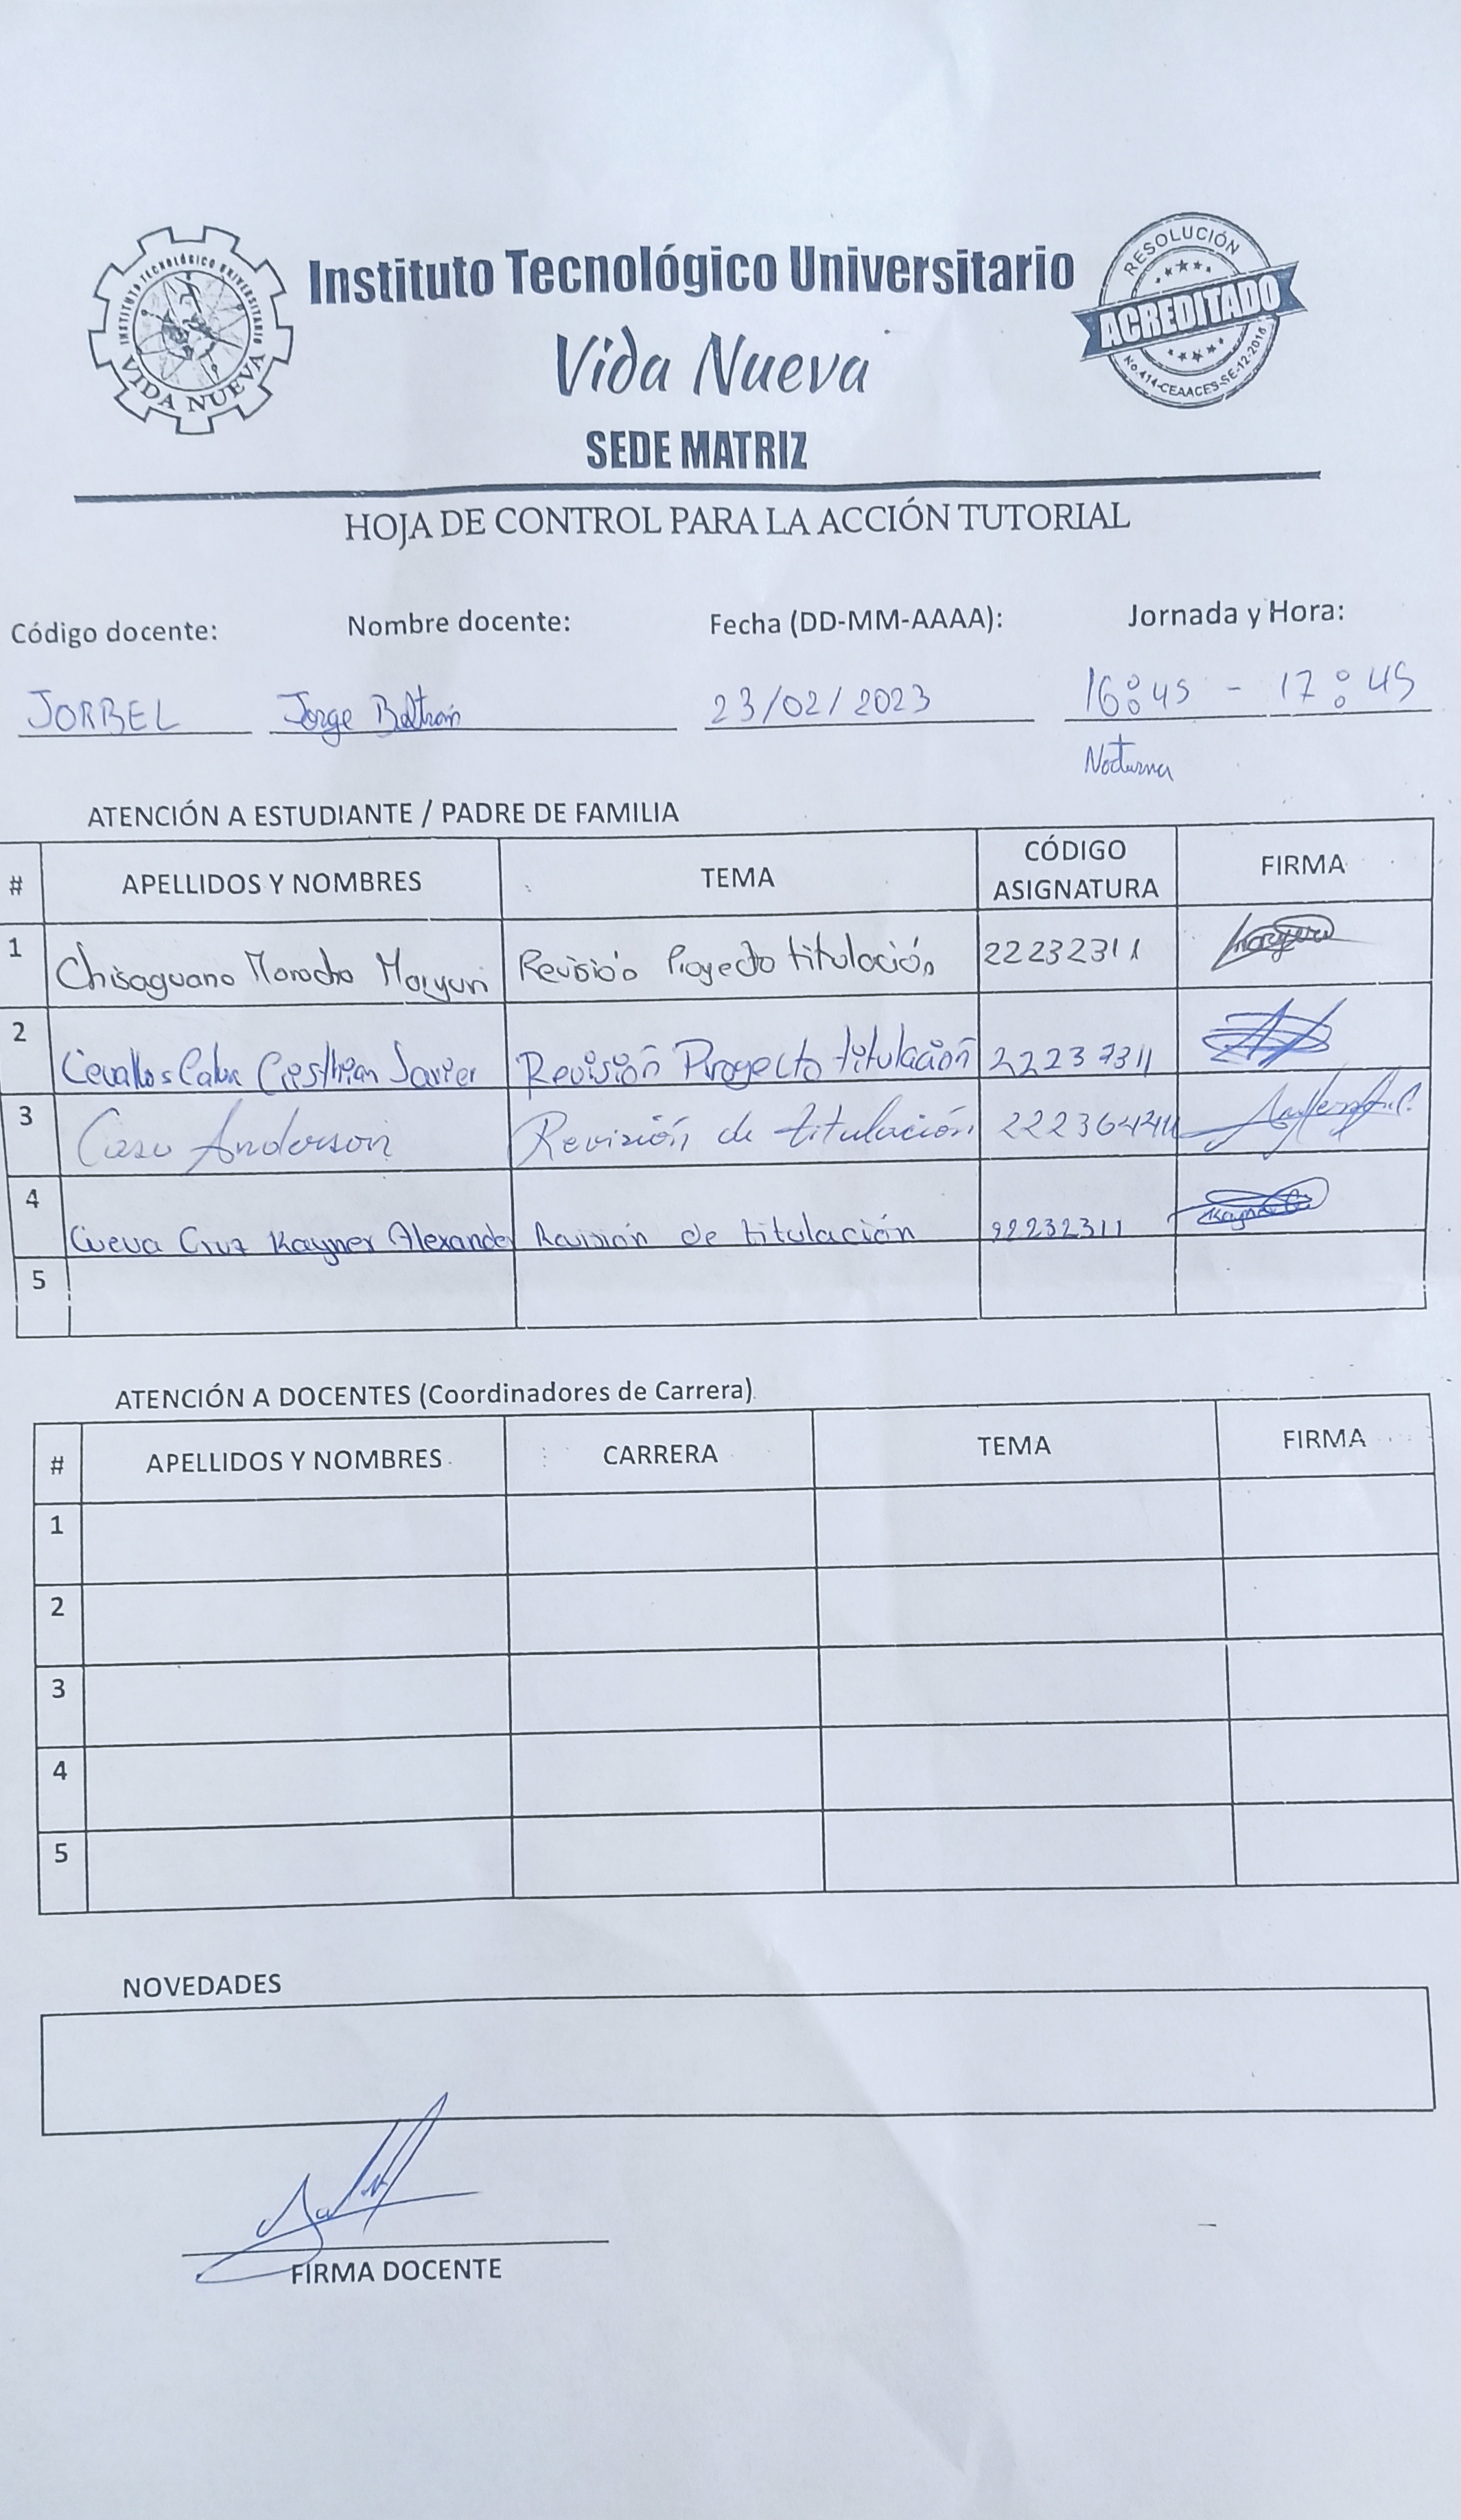 INSTITUTO TECNOLÓGICO UNIVERSITARIO
VIDA NUEVA
Instituto Tecnológico Universitario
Vida Nueva
SEDE MATRIZ
RESOLUCIÓN
ACREDITADO
No.414-CEAACES-SE-12-2016
HOJA DE CONTROL PARA LA ACCIÓN TUTORIAL
Código docente: Nombre docente: Fecha (DD-MM-AAAA): Jornada y Hora:
JORBEL Jorge Beltrán 23/02/2023 16:45 - 17:45
Nocturna
ATENCIÓN A ESTUDIANTE / PADRE DE FAMILIA
# APELLIDOS Y NOMBRES TEMA CÓDIGO ASIGNATURA FIRMA
1 Chisaguano Morocho Maryuri Revisión Proyecto titulación 22232311
2 Cevallos Cristhian Javier Revisión Proyecto titulación
3 Caso Anderson Revisión de titulación
4 Cueva Cruz Kayner Alexander Revisión de titulación 22232311
5
ATENCIÓN A DOCENTES (Coordinadores de Carrera)
# APELLIDOS Y NOMBRES CARRERA TEMA FIRMA
1
2
3
4
5
NOVEDADES
FIRMA DOCENTE